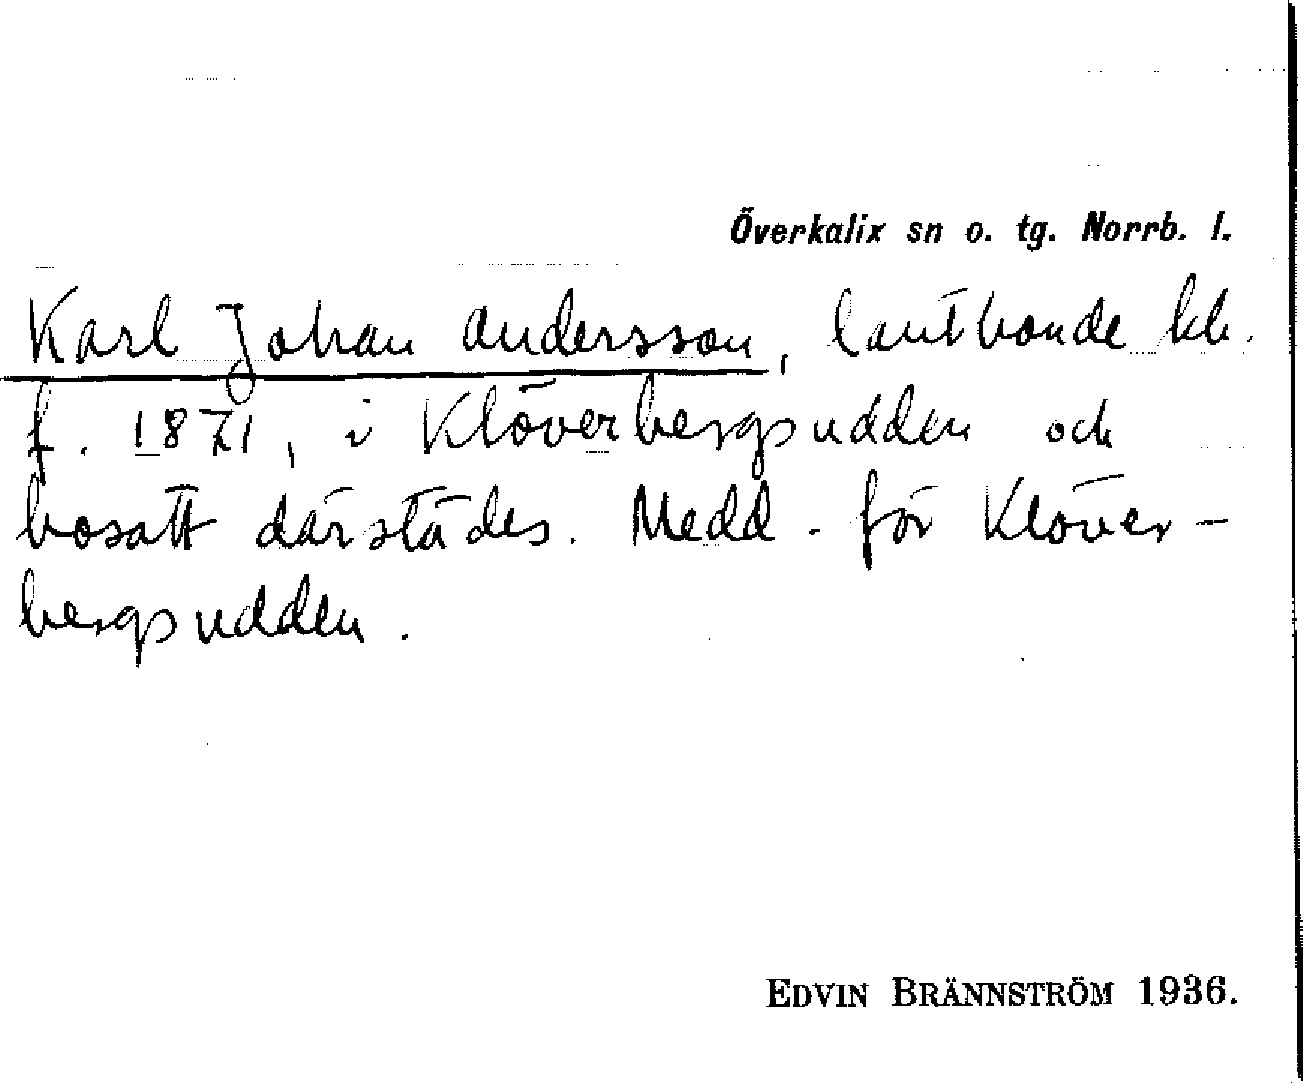 Överkalix sn o. tg. Norrb. l.
Karl Johan Andersson, lantbonde
f. 1871, i Klöverbergsudden och
bosatt därstädes. Medd. för Klöver-
bergsudden.
EDVIN BRÄNNSTRÖM 1936.